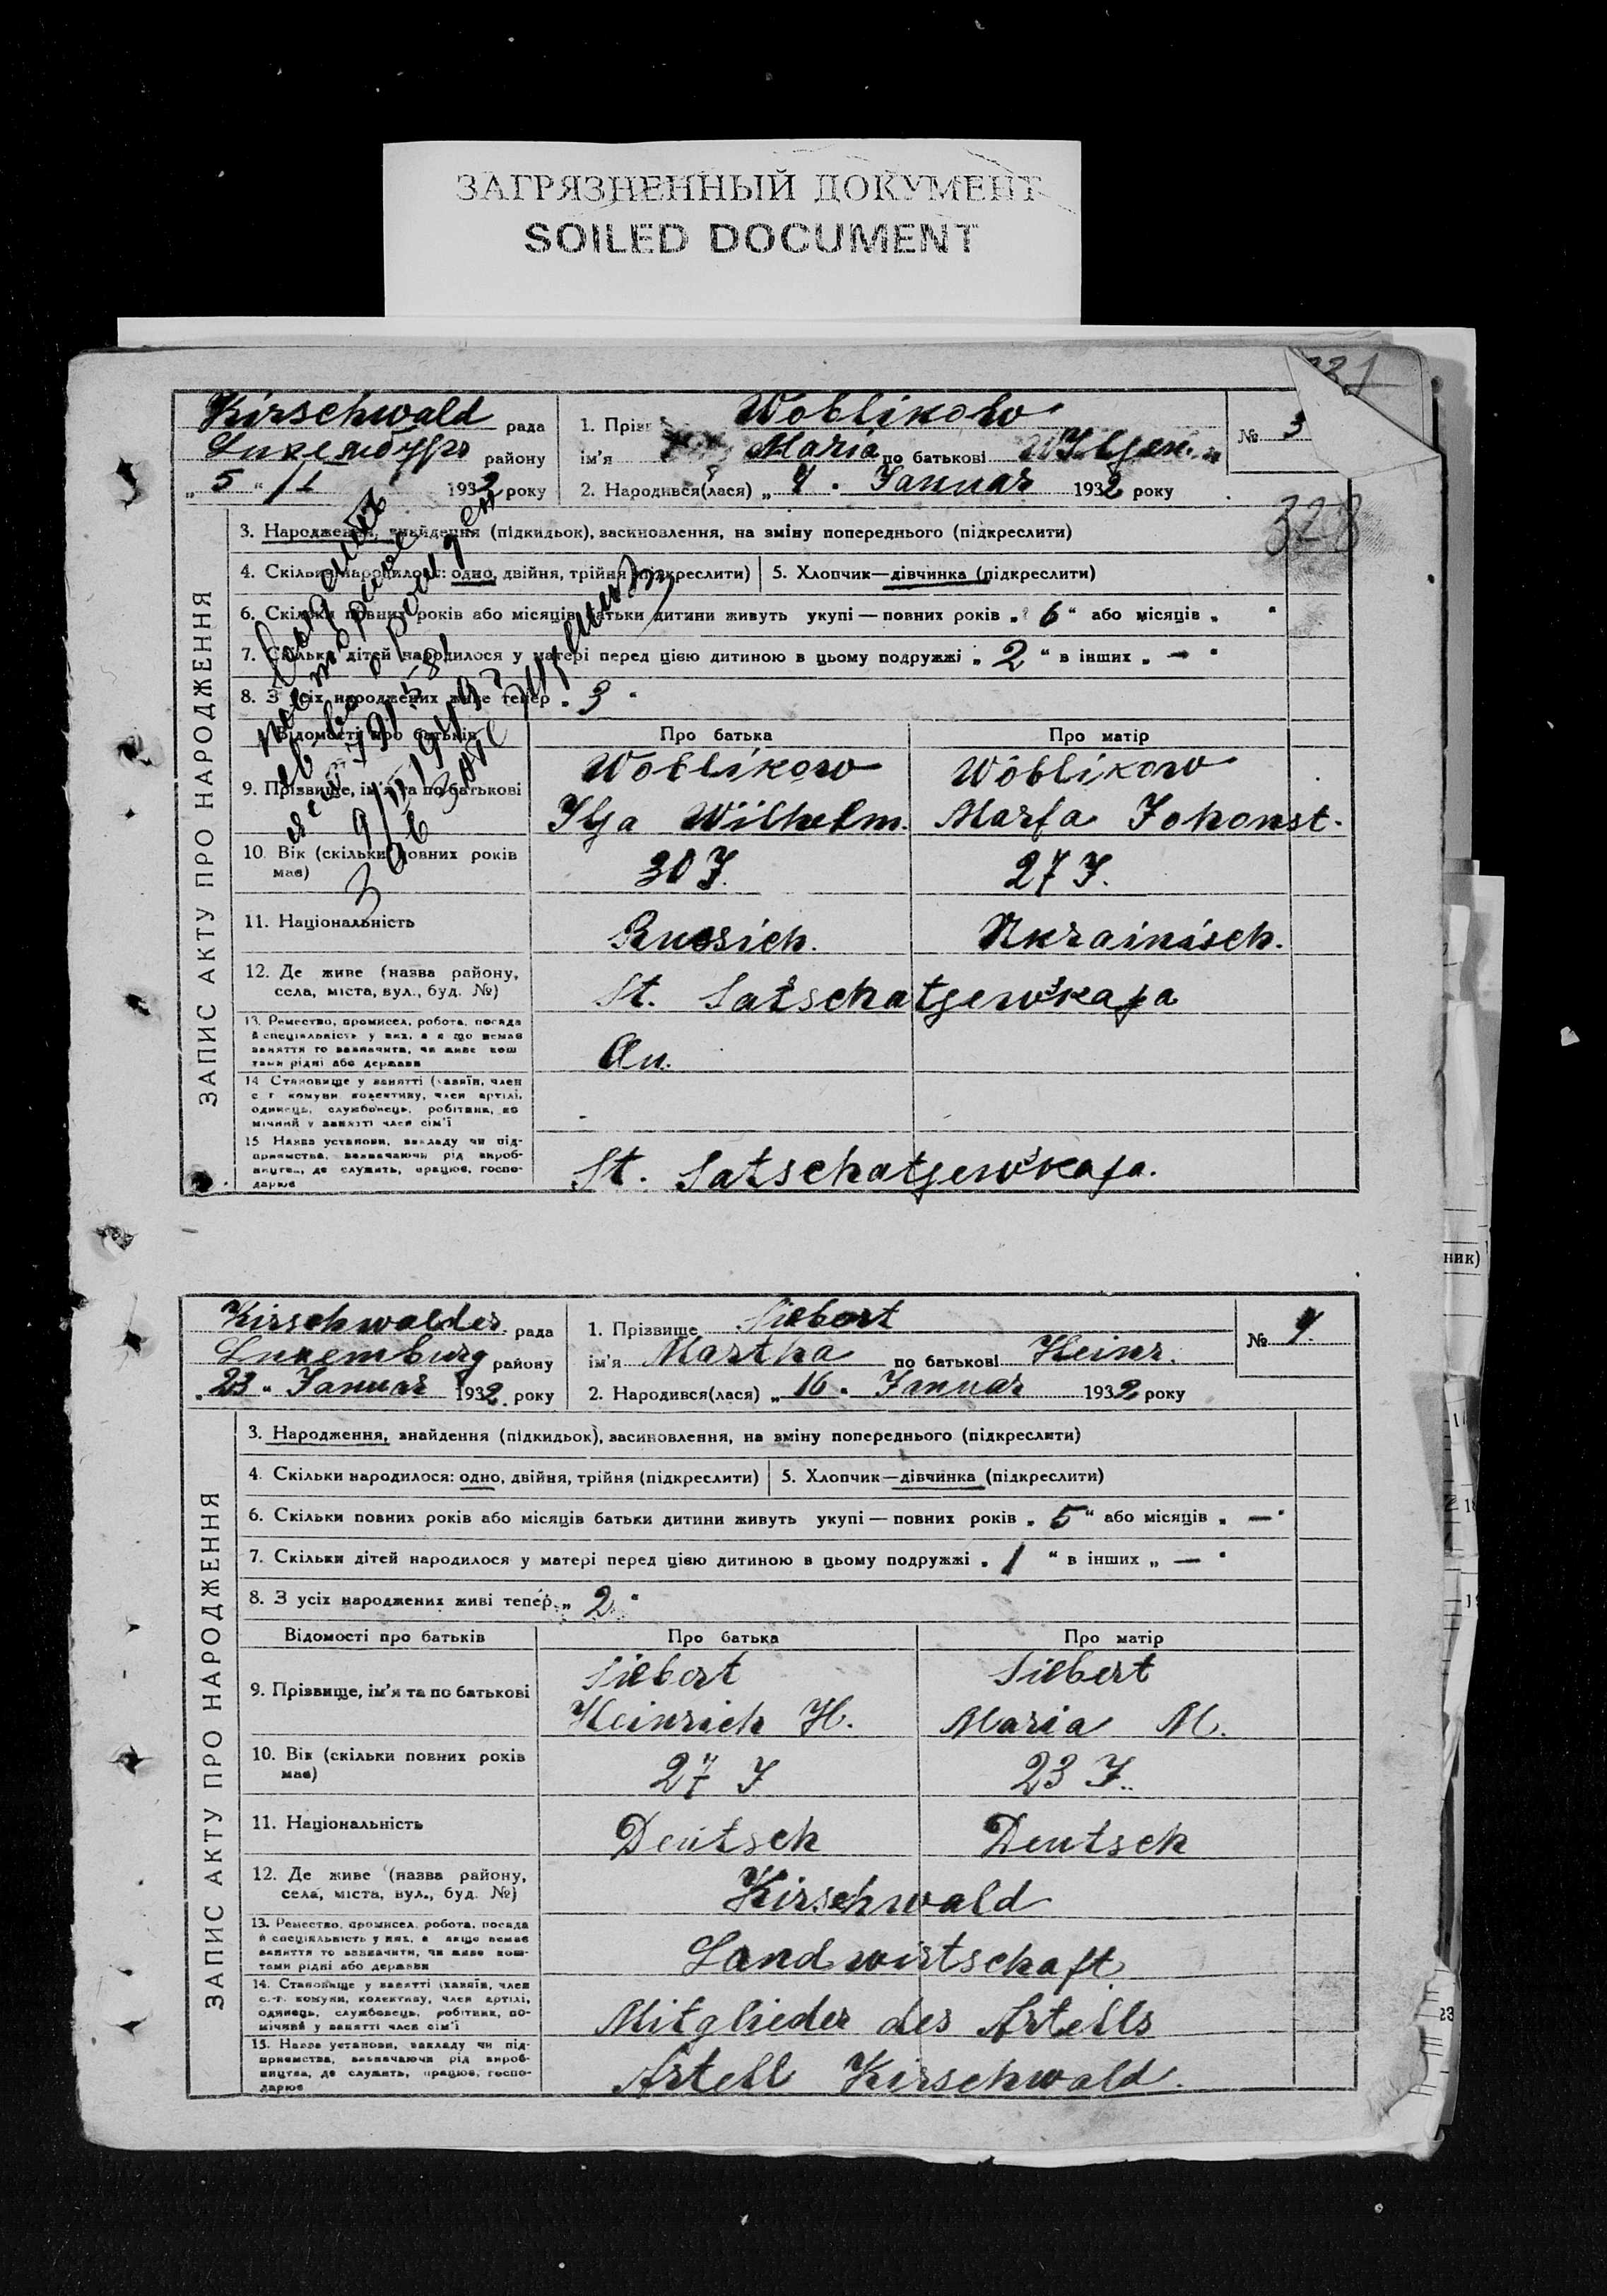 ЗАГРЯЗНЕННЫЙ ДОКУМЕНТ
SOILED DOCUMENT
321
328
ЗАПИС АКТУ ПРО НАРОДЖЕННЯ
Kirschwald рада
Люксембург району
„ 5 “ /1 1932 року
1. Прізв Wöblikow
ім'я Maria по батькові
2. Народився(лася) „ 4 “ Januar 1932 року
№ 3
3. Народження, знайдення (підкидьок), засиновлення, на зміну попереднього (підкреслити)
4. Скільки народилося: одно, двійня, трійня (підкреслити)
5. Хлопчик—дівчинка (підкреслити)
6. Скільки повних років або місяців батьки дитини живуть укупі — повних років „ 6 “ або місяців „ “
7. Скільки дітей народилося у матері перед цією дитиною в цьому подружжі „ 2 “ в інших „ — “
8. З усіх народжених живе тепер „ 3 “
Відомості про батьків
Про батька
Про матір
9. Прізвище, ім'я та по батькові
Wöblikow
Ilja Wilhelm.
Wöblikow
Marfa Johonst.
10. Вік (скільки повних років
має)
30 J.
27 J.
11. Національність
Russich.
Ukrainisch.
12. Де живе (назва району,
села, міста, вул., буд. №)
St. Satschatjewskaja
13. Ремество, промисел, робота, посада
й спеціальність у них, а якщо немає
заняття то зазначити, чи живе кош
тами рідні або держави
An.
14. Становище у занятті (хазяїн, член
с. г. комуни, колективу, член артілі,
одинець, службовець, робітник, по
мічний у занятті член сім'ї
15. Назва установи, закладу чи під-
приємства, зазначаючи рід вироб-
ництва, де служить, працює, госпо-
дарює
St. Satschatjewskaja.
ЗАПИС АКТУ ПРО НАРОДЖЕННЯ
Kirschwalder рада
Luxemburg району
„ 23 “ Januar 1932. року
1. Прізвище Siebert
ім'я Martha по батькові Heinr.
2. Народився(лася) „ 16 “ Januar 1932 року
№ 4
3. Народження, знайдення (підкидьок), засиновлення, на зміну попереднього (підкреслити)
4. Скільки народилося: одно, двійня, трійня (підкреслити)
5. Хлопчик—дівчинка (підкреслити)
6. Скільки повних років або місяців батьки дитини живуть укупі — повних років „ 5 “ або місяців „ — “
7. Скільки дітей народилося у матері перед цією дитиною в цьому подружжі „ 1 “ в інших „ — “
8. З усіх народжених живі тепер „ 2 “
Відомості про батьків
Про батька
Про матір
9. Прізвище, ім'я та по батькові
Siebert
Heinrich H.
Siebert
Maria M.
10. Вік (скільки повних років
має)
27 J
23 J.
11. Національність
Deutsch
Deutsch
12. Де живе (назва району,
села, міста, вул., буд. №)
Kirschwald
13. Ремество, промисел, робота, посада
й спеціальність у них, а якщо немає
заняття то зазначити, чи живе кош-
тами рідні або держави
Landwirtschaft
14. Становище у занятті (хазяїн, член
с.-г. комуни, колективу, член артілі,
одинець, службовець, робітник, по-
мічний у занятті член сім'ї
Mitglieder des Artells
15. Назва установи, закладу чи під-
приємства, зазначаючи рід вироб-
ництва, де служить, працює, госпо-
дарює
Artell Kirschwald.
ник)
23